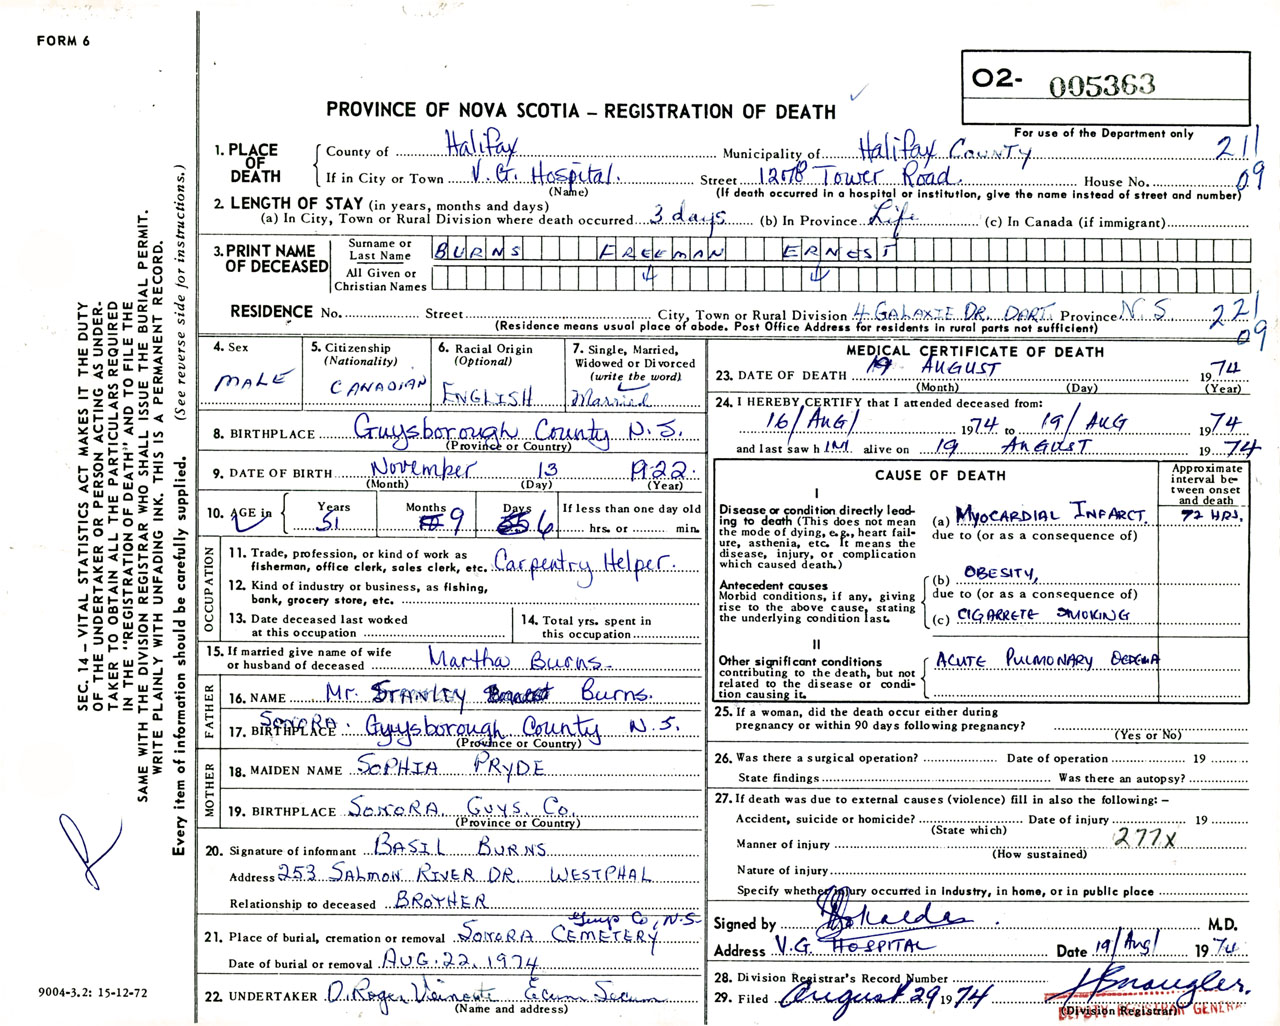 FORM 6
O2- 005363
PROVINCE OF NOVA SCOTIA – REGISTRATION OF DEATH
For use of the Department only
1. PLACE OF DEATH
County of Halifax Municipality of Halifax County 211
If in City or Town V.G. Hospital. Street 1278 Tower Road. House No. 09
(Name) (If death occurred in a hospital or institution, give the name instead of street and number)
2. LENGTH OF STAY (in years, months and days)
(a) In City, Town or Rural Division where death occurred 3 days (b) In Province Life (c) In Canada (if immigrant)
3. PRINT NAME OF DECEASED
Surname or Last Name BURNS FREEMAN ERNEST
All Given or Christian Names
RESIDENCE No. Street City, Town or Rural Division 4 GALAXIE DR. DART. Province N.S 221
(Residence means usual place of abode. Post Office Address for residents in rural parts not sufficient) 09
4. Sex
MALE
5. Citizenship
(Nationality)
CANADIAN
6. Racial Origin
(Optional)
ENGLISH
7. Single, Married,
Widowed or Divorced
(write the word)
Married
8. BIRTHPLACE Guysborough County N.S.
(Province or Country)
9. DATE OF BIRTH November 13 1922
(Month) (Day) (Year)
10. AGE in
Years 51
Months 9
Days 6
If less than one day old
hrs. or min.
OCCUPATION
11. Trade, profession, or kind of work as
fisherman, office clerk, sales clerk, etc. Carpentry Helper.
12. Kind of industry or business, as fishing,
bank, grocery store, etc.
13. Date deceased last worked
at this occupation
14. Total yrs. spent in
this occupation
15. If married give name of wife
or husband of deceased Martha Burns.
FATHER
16. NAME Mr. STANLEY Burns.
17. BIRTHPLACE SONORA. Guysborough County N.S.
(Province or Country)
MOTHER
18. MAIDEN NAME SOPHIA PRYDE
19. BIRTHPLACE SONORA GUYS. CO.
(Province or Country)
20. Signature of informant BASIL BURNS
Address 253 SALMON RIVER DR. WESTPHAL
Relationship to deceased BROTHER
Guys Co, N.S
21. Place of burial, cremation or removal SONORA CEMETERY
Date of burial or removal AUG. 22, 1974
22. UNDERTAKER D. Roger Ecum Secum
(Name and address)
MEDICAL CERTIFICATE OF DEATH
23. DATE OF DEATH 19 AUGUST 1974
(Month) (Day) (Year)
24. I HEREBY CERTIFY that I attended deceased from:
16/AUG/ 1974 to 19/AUG 1974
and last saw h IM alive on 19 AUGUST 1974
CAUSE OF DEATH
Approximate interval between onset and death
I
Disease or condition directly leading to death (This does not mean the mode of dying, e.g., heart failure, asthenia, etc. It means the disease, injury, or complication which caused death.)
(a) MYOCARDIAL INFARCT. 72 HRS.
due to (or as a consequence of)
Antecedent causes
Morbid conditions, if any, giving rise to the above cause, stating the underlying condition last.
(b) OBESITY,
due to (or as a consequence of)
(c) CIGARRETE SMOKING
II
Other significant conditions
contributing to the death, but not related to the disease or condition causing it.
ACUTE PULMONARY OEDEMA
25. If a woman, did the death occur either during
pregnancy or within 90 days following pregnancy?
(Yes or No)
26. Was there a surgical operation? Date of operation 19
State findings Was there an autopsy?
27. If death was due to external causes (violence) fill in also the following: –
Accident, suicide or homicide? Date of injury 19
(State which) 277X
Manner of injury
(How sustained)
Nature of injury
Specify whether injury occurred in industry, in home, or in public place
Signed by M.D.
Address V.G. HOSPITAL Date 19/Aug/ 1974
28. Division Registrar's Record Number
29. Filed August 29 1974
(Division Registrar)
DEPUTY REGISTRAR GENERAL
SEC. 14 – VITAL STATISTICS ACT MAKES IT THE DUTY
OF THE UNDERTAKER OR PERSON ACTING AS UNDER-
TAKER TO OBTAIN ALL THE PARTICULARS REQUIRED
IN THE "REGISTRATION OF DEATH" AND TO FILE THE
SAME WITH THE DIVISION REGISTRAR WHO SHALL ISSUE THE BURIAL PERMIT.
WRITE PLAINLY WITH UNFADING INK. THIS IS A PERMANENT RECORD.
Every item of information should be carefully supplied. (See reverse side for instructions.)
9004-3.2: 15-12-72